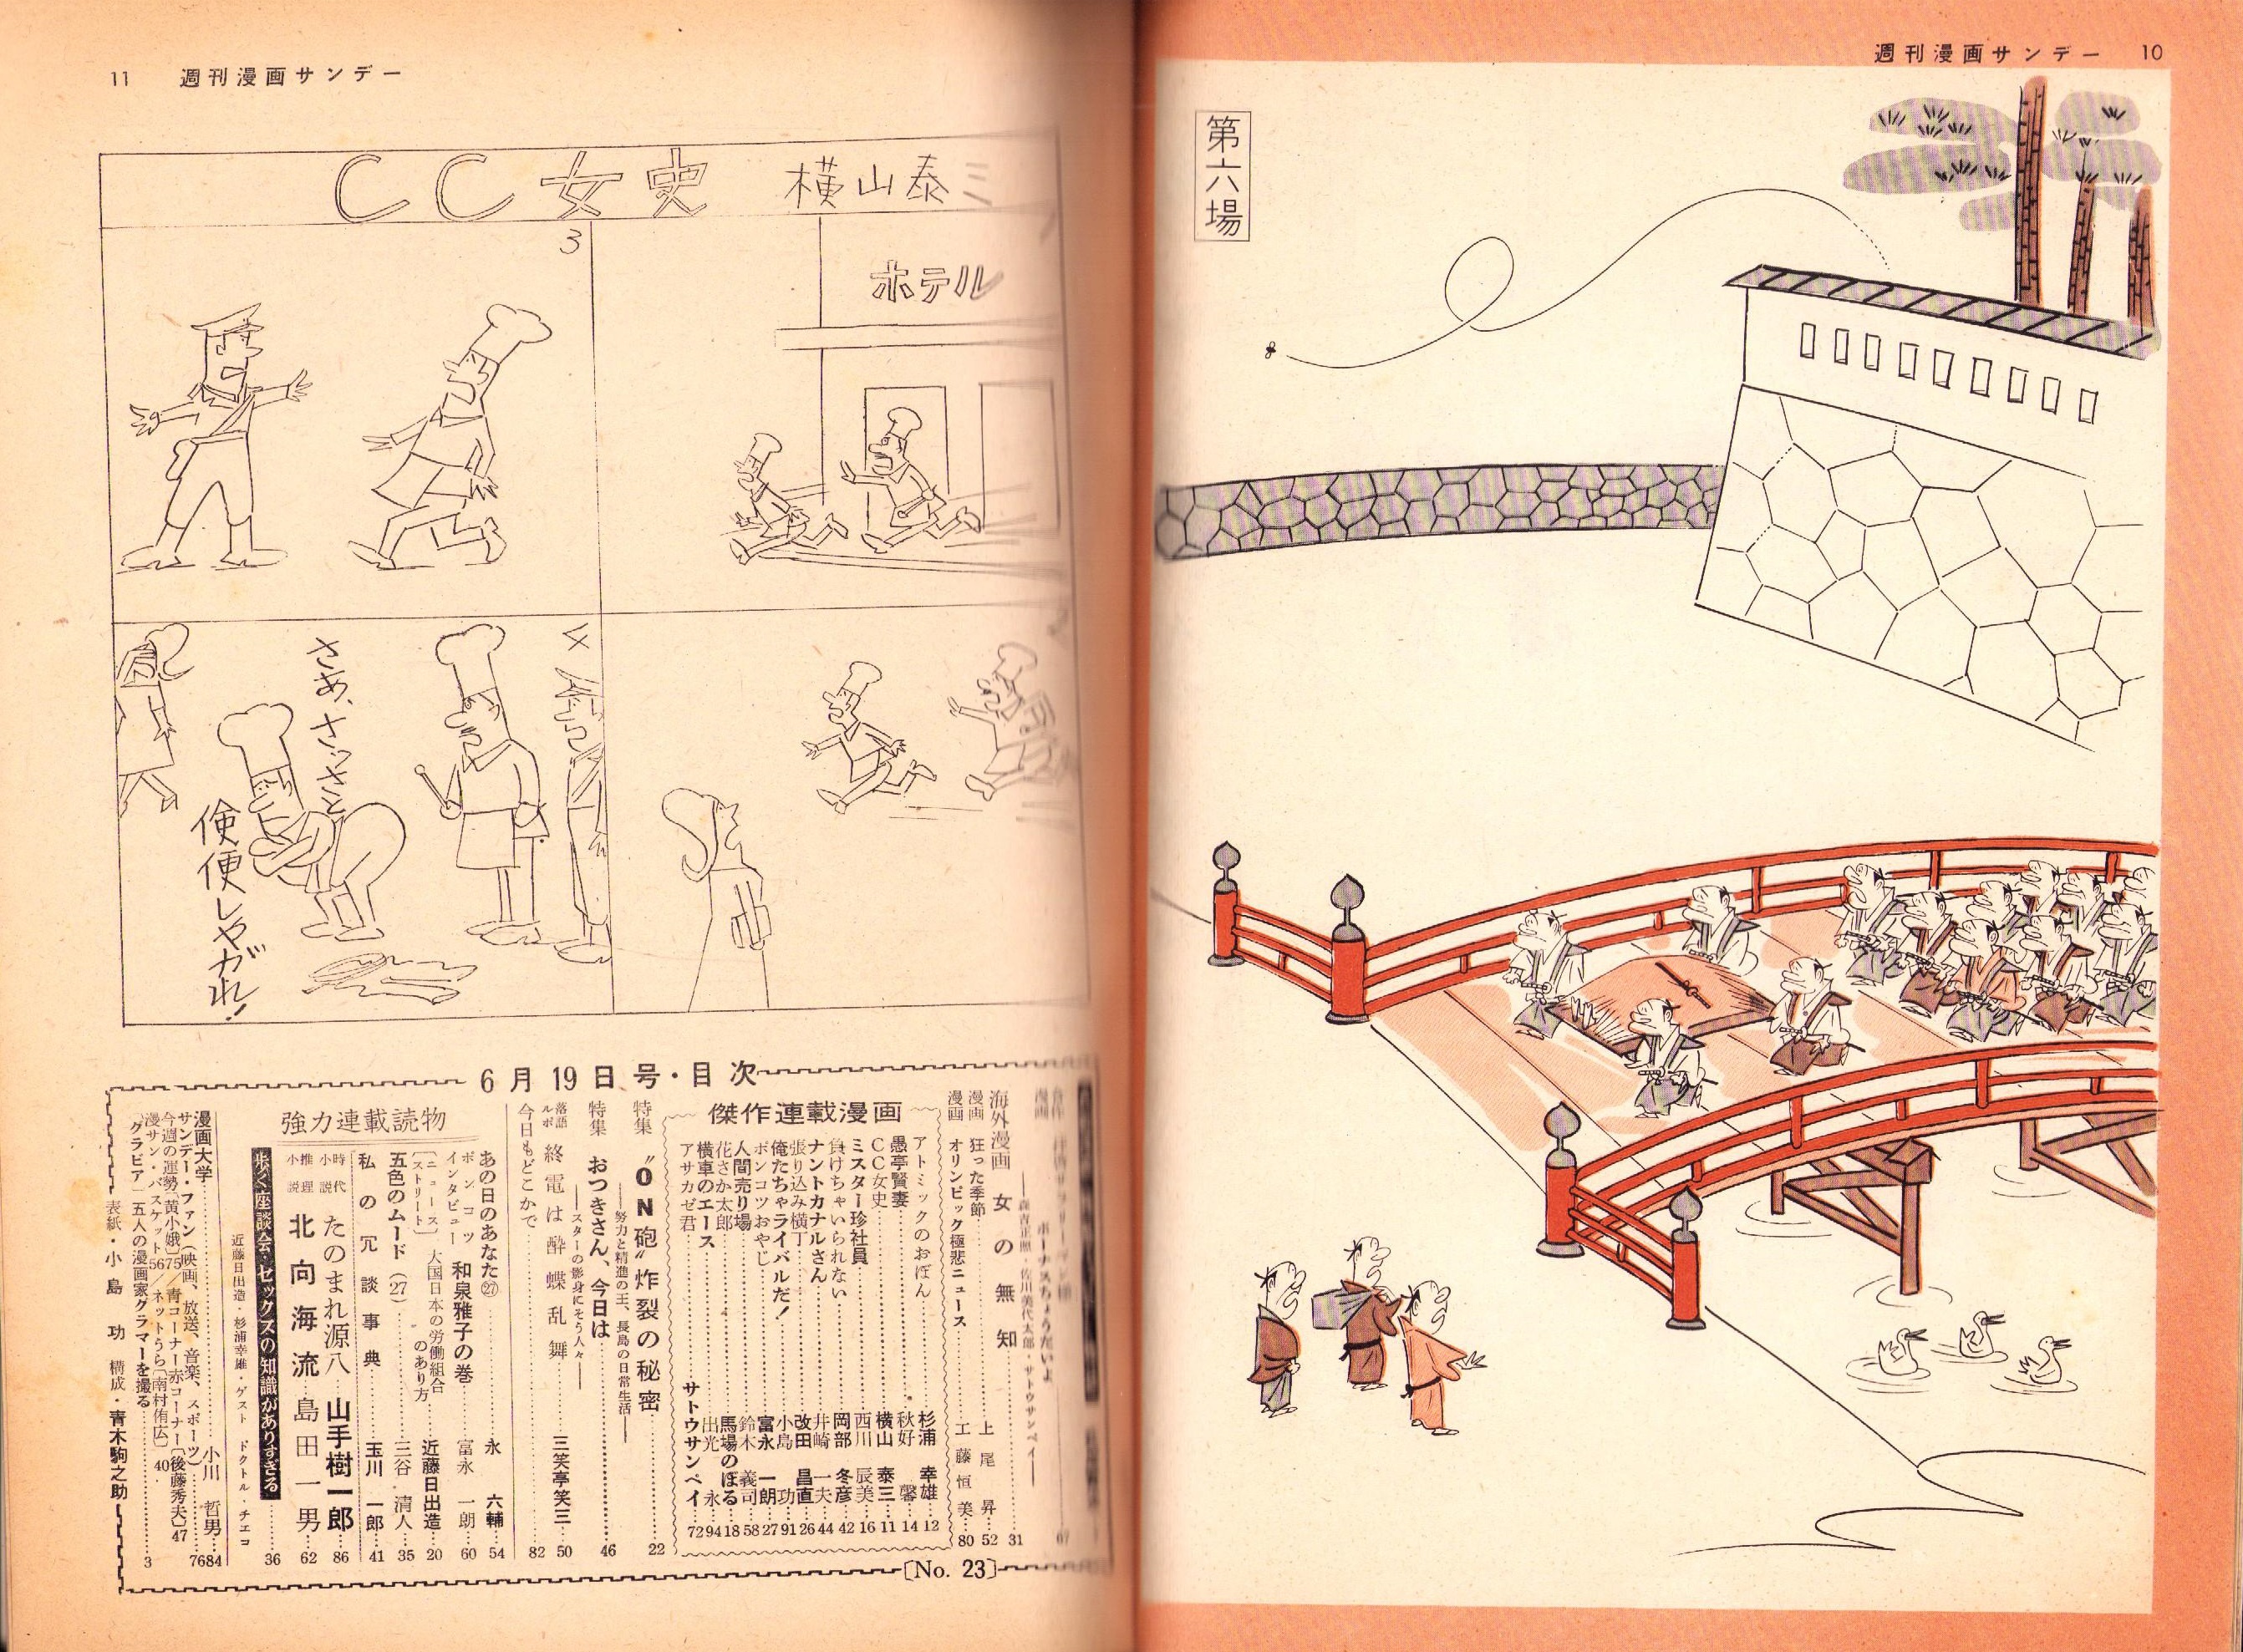 週刊漫画サンデー 10
第六場
11 週刊漫画サンデー
CC女史 横山泰三
ホテル
3
4
さあ、さっさと
使便しやがれ!
6月19日号・目次
海外漫画 女の無知 31
漫画 狂った季節 上尾昇 52
漫画 オリンピック極悲ニュース 工藤恒美 80
傑作連載漫画
アトミックのおぼん 杉浦幸雄 12
愚亭賢妻 秋好馨 14
CC女史 横山泰三 11
ミスター珍社員 西川辰美 16
負けちゃいられない 岡部冬彦 42
ナントカナルさん 井崎一夫 44
張り込み横丁 改田昌直 26
俺たちゃライバルだ! 小島功 91
ポンコツおやじ 富永一朗 27
人間売り場 鈴木義司 58
花さか太郎 馬場のぼる 18
横車のエース 出光永 94
アサカゼ君 サトウサンペイ 72
特集 “ON砲”炸裂の秘密 22
――努力と精進の王、長島の日常生活――
特集 おつきさん、今日は 46
――スターの影身にそう人々――
落語ルポ 終電は酔蝶乱舞 三笑亭笑三 50
今日もどこかで 82
強力連載読物
あの日のあなた㉗ 永六輔 54
ポンコツインタビュー 和泉雅子の巻 富永一朗 60
〔ニュースストリート〕 大国日本の労働組合のあり方 近藤日出造 20
五色のムード(27) 三谷清人 35
私の冗談事典 玉川一郎 41
時代小説 たのまれ源八 山手樹一郎 86
推理小説 北向海流 島田一男 62
歩く座談会・セックスの知識がありすぎる 36
近藤日出造・杉浦幸雄・ゲスト ドクトル・チエコ
漫画大学 小川哲男 84
サンデー・ファン(映画、放送、音楽、スポーツ) 76
今週の運勢〔黄小娥〕75/青コーナー赤コーナー〔後藤秀夫〕47
漫サン・バスケット56 67/ネットうら〔南村侑広〕40
〔グラビア〕五人の漫画家グラマーを撮る 3
表紙・小島功 構成・青木駒之助
〔No. 23〕